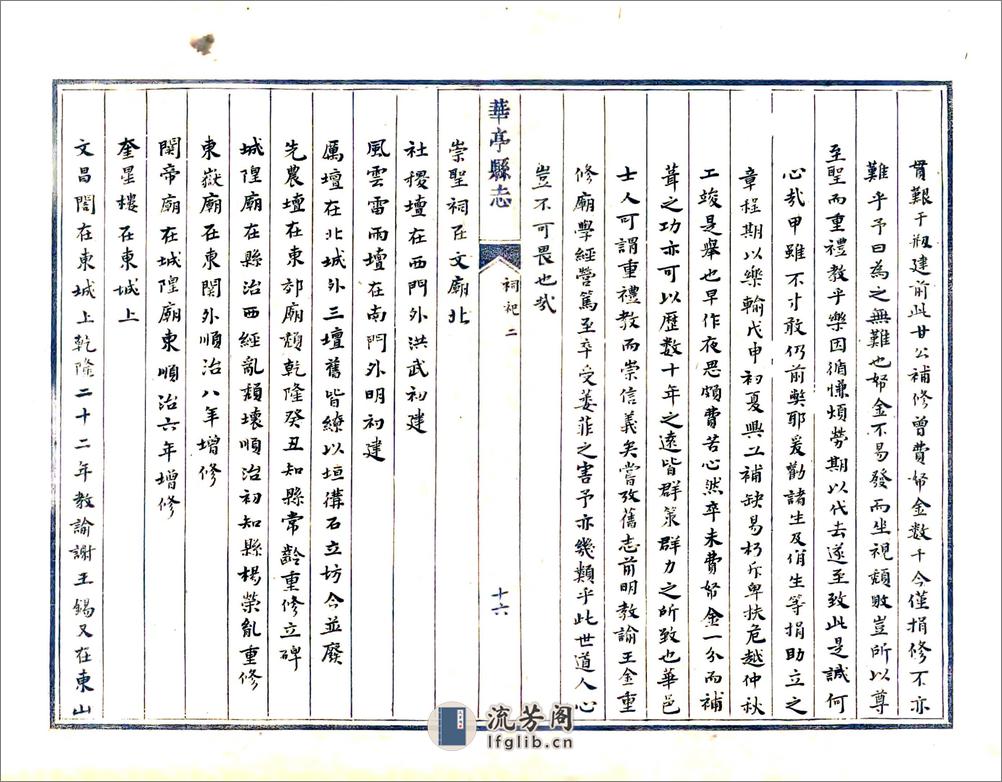 貫艱于瓶建前此甘公補修曾費帑金数千今僅捐修不亦
難乎予曰為之無難也帑金不易發而坐視頹敗豈所以尊
至聖而重禮教乎樂因循慊煩勞期以代去遂至致此是誠何
心哉甲雖不才敢仍前獘耶爰勸諸生及俏生等捐助立之
章程期以樂輸戊申初夏興工補缺易朽斥卑扶危越仲秋
工竣是舉也早作夜思頗費苦心然卒未費帑金一分而補
葺之功亦可以歴数十年之遠皆群策群力之所致也華邑
士人可謂重禮教而崇信義矣嘗攷舊志前明教諭王金重
修廟學經營篤至卒受萋菲之害予亦幾類乎此世道人心
豈不可畏也哉
華亭縣志
祠祀 二
十六
崇聖祠在文廟北
社稷壇在西門外洪武初建
風雲雷雨壇在南門外明初建
厲壇在北城外三壇舊皆繚以垣構石立坊今並廢
先農壇在東郊廟頹乾隆癸丑知縣常齡重修立碑
城隍廟在縣治西經亂頹壞順治初知縣楊榮胤重修
東嶽廟在東関外順治八年增修
関帝廟在城隍廟東順治六年增修
奎星樓在東城上
文昌閣在東城上乾隆二十二年教諭謝王錫又在東山
流芳阁
lfglib.cn